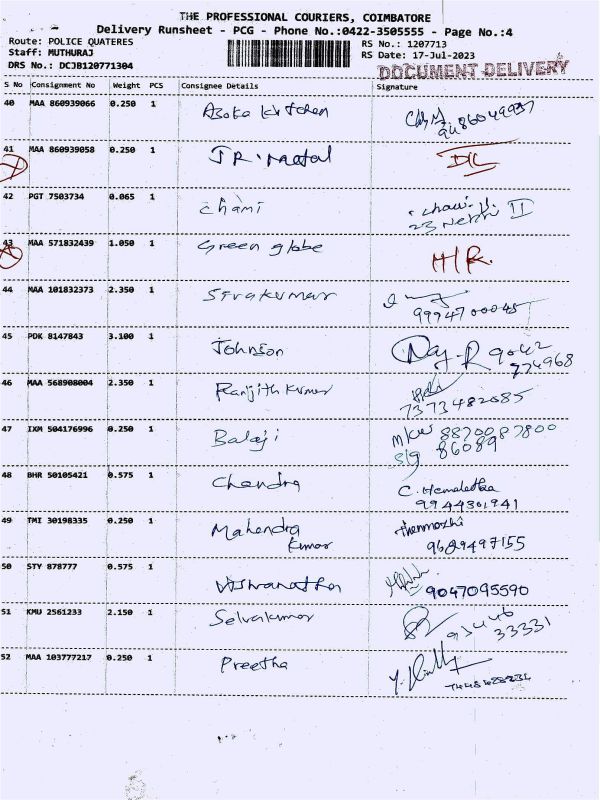 THE PROFESSIONAL COURIERS, COIMBATORE
Delivery Runsheet - PCG - Phone No.:0422-3505555 - Page No.:4
Route: POLICE QUATERES RS No.: 1207713
Staff: MUTHURAJ RS Date: 17-Jul-2023
DRS No.: DCJB120771304 DOCUMENT DELIVERY
S No Consignment No Weight PCS Consignee Details Signature
40 MAA 860939066 0.250 1 Asoka kitchen
9486049937
41 MAA 860939058 0.250 1 JR. Metal D/L
42 PGT 7503734 0.065 1 Chami
23 Nehru II
43 MAA 571832439 1.050 1 Green globe H/R.
44 MAA 101832373 2.350 1 Sivakumar
9994700045
45 PDK 8147843 3.100 1 Johnson Raj-R 9042
974968
46 MAA 568908004 2.350 1 Ranjith Kumar
7373482585
47 IXM 504176996 0.250 1 Balaji 8870087800
86089
48 BHR 50105421 0.575 1 Chandra C. Hemalatha
9944301941
49 TMI 30198335 0.250 1 Mahendra thenmozhi
kumar 9629497155
50 STY 878777 0.575 1 Viswanathan 9047095590
51 KMU 2561233 2.150 1 Selvakumar
93446
33331
52 MAA 103777217 0.250 1 Preetha